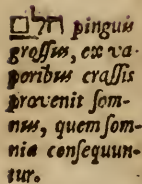 חלם pinguis
grossus, ex va-
poribus crassis
provenit som-
nus, quem som-
nia consequun-
tur.